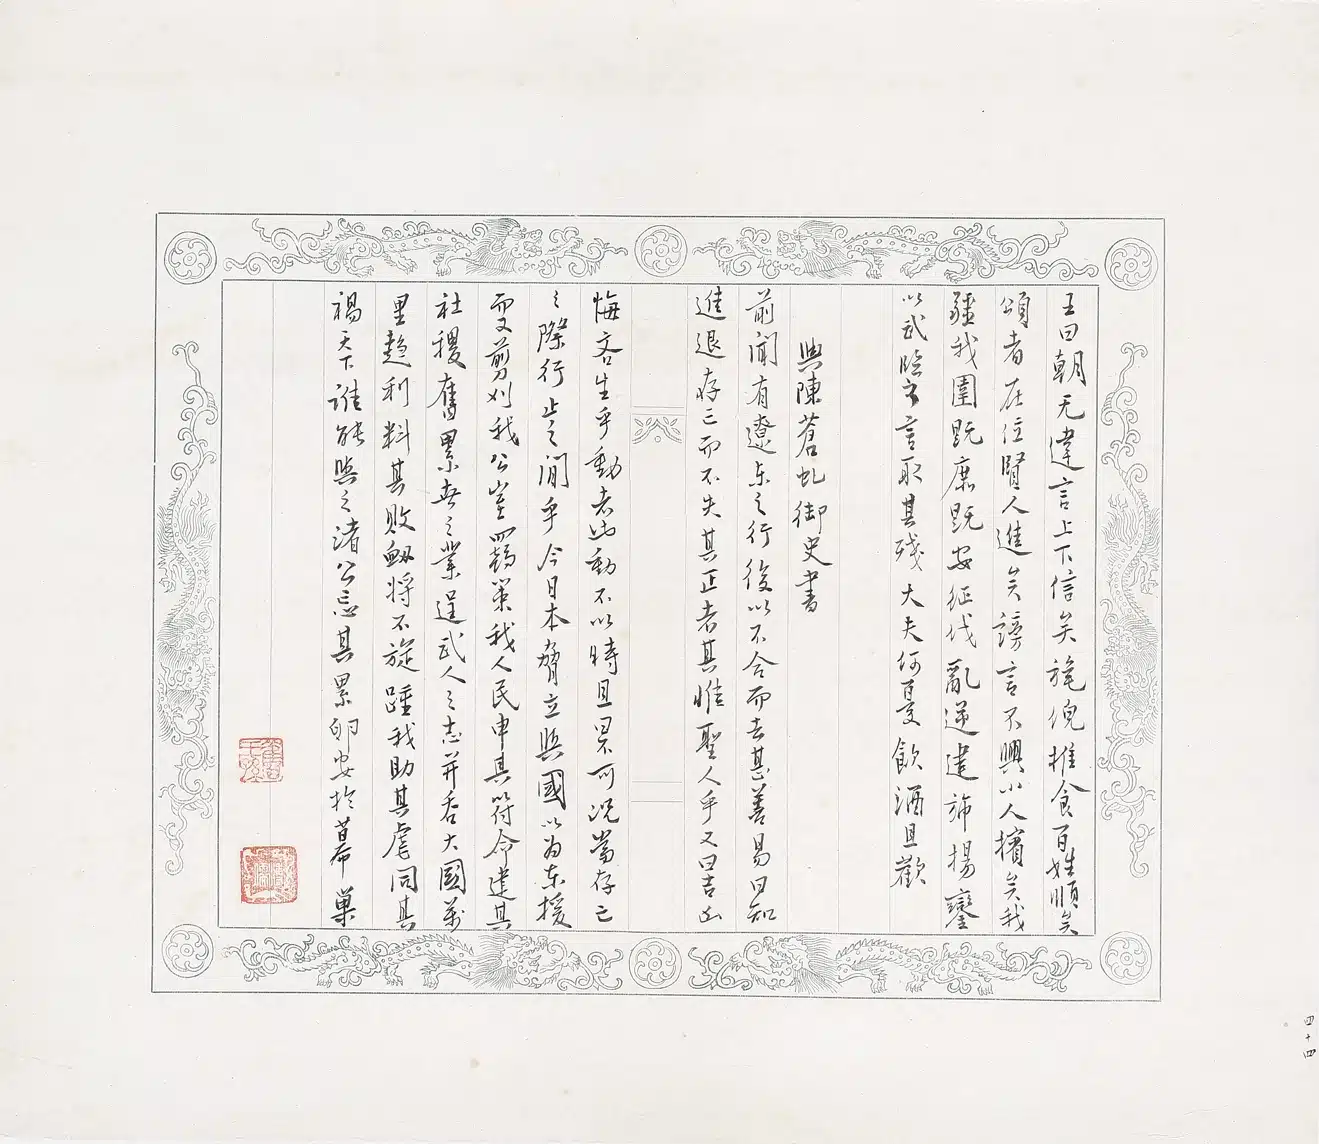 王曰朝无違言上下信矣旄倪推食百姓順矣
頌者在位賢人進矣謗言不興小人擯矣我
疆我圉既庶既安征伐亂逆建旆揚鑾
以武臨之言取其殘大夫何憂飲酒且歡
與陳蒼虬御史書
前聞有遼东之行後以不合而去甚善易曰知
進退存亡而不失其正者其惟聖人乎又曰吉凶
悔吝生乎動者也動不以時且君不可況當存亡
之際行止之間乎今日本脅立與國以为东援
而又剪刈我公室羈策我人民申其符命建其
社稷奮累世之業逞武人之志并吞大國万
里趋利料其败衂將不旋踵我助其虐同其
禍天下誰能與之诸公忘其累卵安於幕巢
四十四